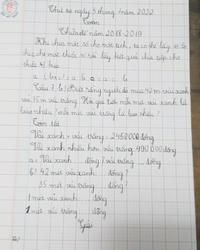 Thứ sáu ngày 3 tháng 1 năm 2020
Toán
Thử đề năm 2018-2019
Khi chia một số cho một tích, ta có thể lấy số đó
chia cho một thừa số rồi lấy kết quả chia tiếp cho
thừa số kia
a : (b x c) = a : b : c = a : c : b
Câu 7: 6) Một người đã mua 42 m vải xanh
và 35 m vải trắng. Hỏi giá tiền mỗi mét vải xanh là
bao nhiêu? mỗi mét vải trắng là bao nhiêu?
Tóm tắt
Vải xanh + vải trắng: 2450000 đồng
Vải xanh nhiều hơn vải trắng: 490 000 đồng
a: Vải xanh đồng? vải trắng đồng?
b: 42 mét vải xanh: đồng?
35 mét vải trắng đồng?
1 mét vải xanh: đồng
1 mét vải trắng: đồng
Giải